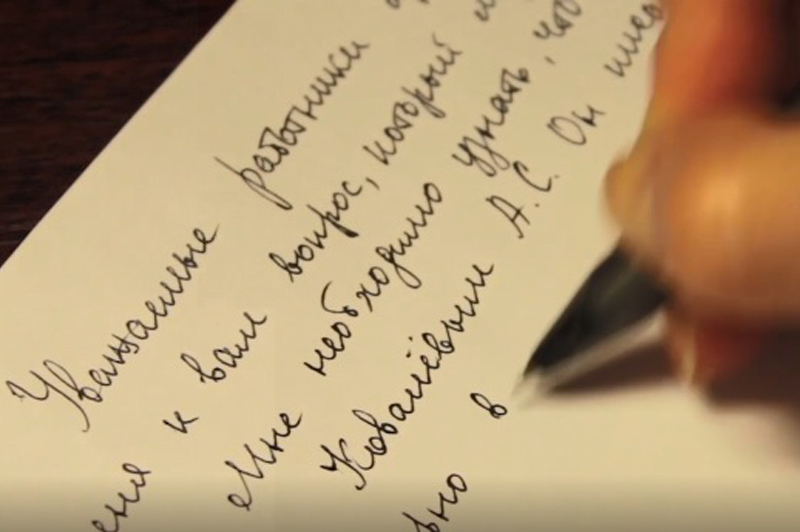 Уважаемые работники
к вам вопрос, который
Мне необходимо узнать, что
Ковалёвым А.С. Он
в